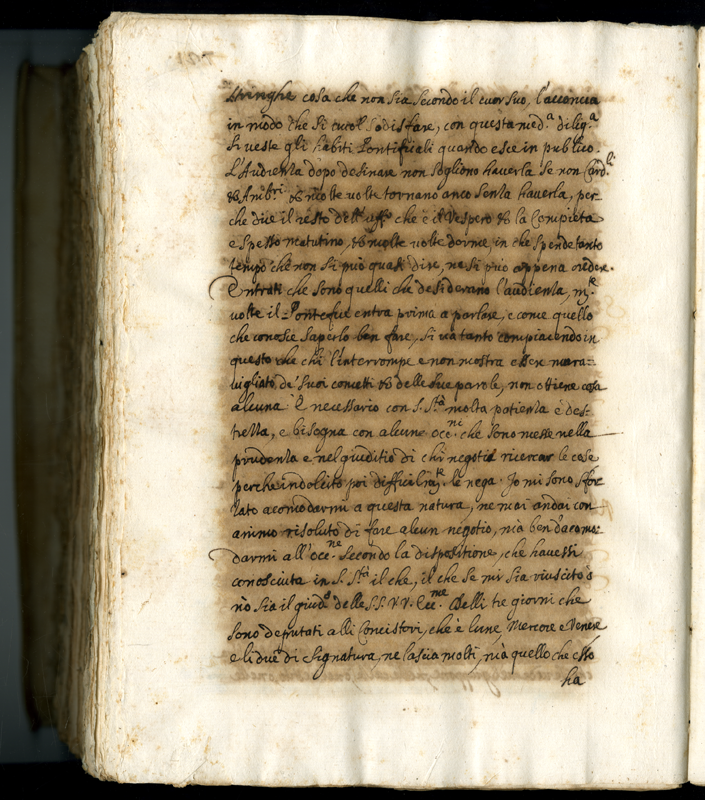 stringhe cosa che non sia secondo il cuor suo, l'acconcia
in modo che si cuol sodisfare, con questa med.ª dilig.ª
si veste gli habiti Pontificali quando esce in publico.
L'Audienza dopo desinare non sogliono haverla se non Card.li
& Amb.ri & molte volte tornano anco senza haverla, per-
che dice il resto dell' uff.o che è il Vespero & la Compieta
e spesso matutino, & molte volte dorme, in che spende tanto
tempo che non si può quasi dire, ne si può appena credere.
Entrati che sono quelli che desiderano l'audienza, m.te
volte il Pontefice entra prima a parlare, e come quello
che conosce saperlo ben fare, si và tanto compiacendo in
questo che chi l'interrompe e non mostra esser mara-
vigliato de' suoi concetti & delle sue parole, non ottiene cosa
alcuna. È necessario con S. S.tà molta patienza e des-
trezza, e bisogna con alcune occ.ni che sono messe nella
prudenza e nel giuditio di chi negotia ricercar le cose
perche indolcito poi difficilm.te le nega. Io mi sono sfor
zato acomodarmi a questa natura, ne mai andai con
animo risoluto di fare alcun negotio, mà ben d'acomo-
darmi all'occ.ne secondo la dispositione, che havessi
conosciuta in S. S.tà il che, il che se mi sia riuscito ò
nò sia il giud.o delle SS. VV. Ecc.me. Delli tre giorni che
sono deputati alli Concistori, che è lune, Mercore e Venere
e li due di signatura, ne lascia molti, mà quello che esso
ha